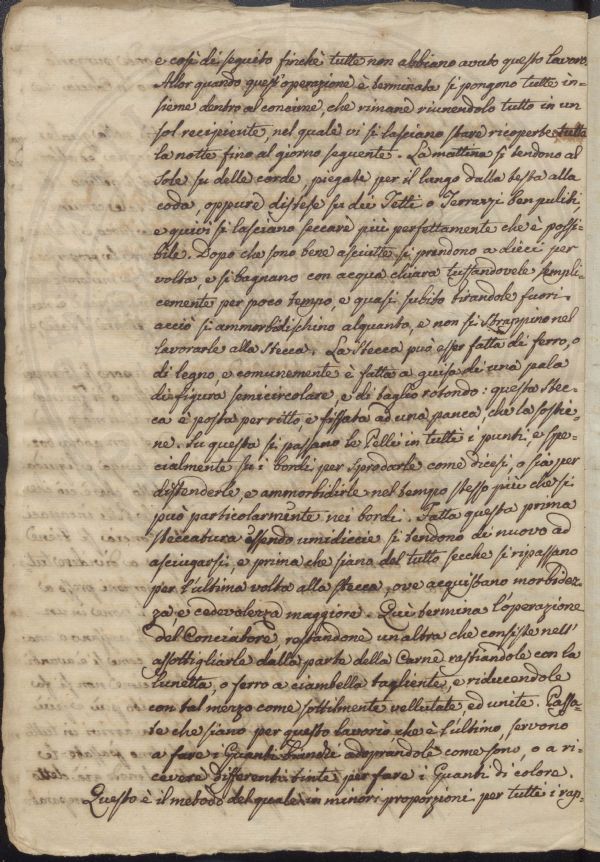 e così di seguito finchè tutte non abbiano avuto questo lavoro.
Allor quando quest'operazione è terminata si pongono tutte in-
sieme dentro al concime, che rimane riunendolo tutto in un
sol recipiente, nel quale vi si lasciano stare ricoperte tutta
la notte fino al giorno seguente. La mattina si tendono al
Sole su delle corde, piegate per il lungo dalla testa alla
coda, oppure distese su dei Tetti o Terrazzi ben puliti
e quivi si lasciano seccare più perfettamente che è possi-
bile. Dopo che sono bene asciutte si prendono a dieci per
volta, e si bagnano con acqua chiara tuffandovele sempli-
cemente per poco tempo, e quasi subito tirandole fuori.
acciò si ammorbidischino alquanto, e non si strappino nel
lavorarle alla Stecca. La Stecca può esser fatta di ferro, o
di legno, e comunemente è fatta a guisa di una pala
di figura semicircolare, e di taglio rotondo: questa Stec-
ca è posta per ritto, e fissata ad una panca, che la sostie-
ne. Su questa si passano le Pelli in tutti i punti, e spe-
cialmente su i bordi per sprodarle come dicesi, o sia per
distenderle, e ammorbidirle nel tempo stesso più che si
può particolarmente nei bordi. Fatta questa prima
steccatura essendo umidiccie si tendono di nuovo ad
asciugarsi, e prima che siano del tutto secche si ripassano
per l'ultima volta alla stecca, ove acquistano morbidez-
za, e cedevolezza maggiore. Quì termina l'operazione
del Conciatore restandone un'altra che consiste nell'
assottigliarle dalla parte della Carne rastiandole con la
lunetta, o ferro a ciambella tagliente, e riducendole
con tal mezzo come sottilmente vellutate, ed unite. Passa-
te che siano per questo lavorio che è l'ultimo, servono
a fare i Guanti adoprandole come sono, o a ri-
cevere differenti tinte per fare i Guanti di colore.
Questo è il metodo del quale in minori proporzioni per tutti i rap-